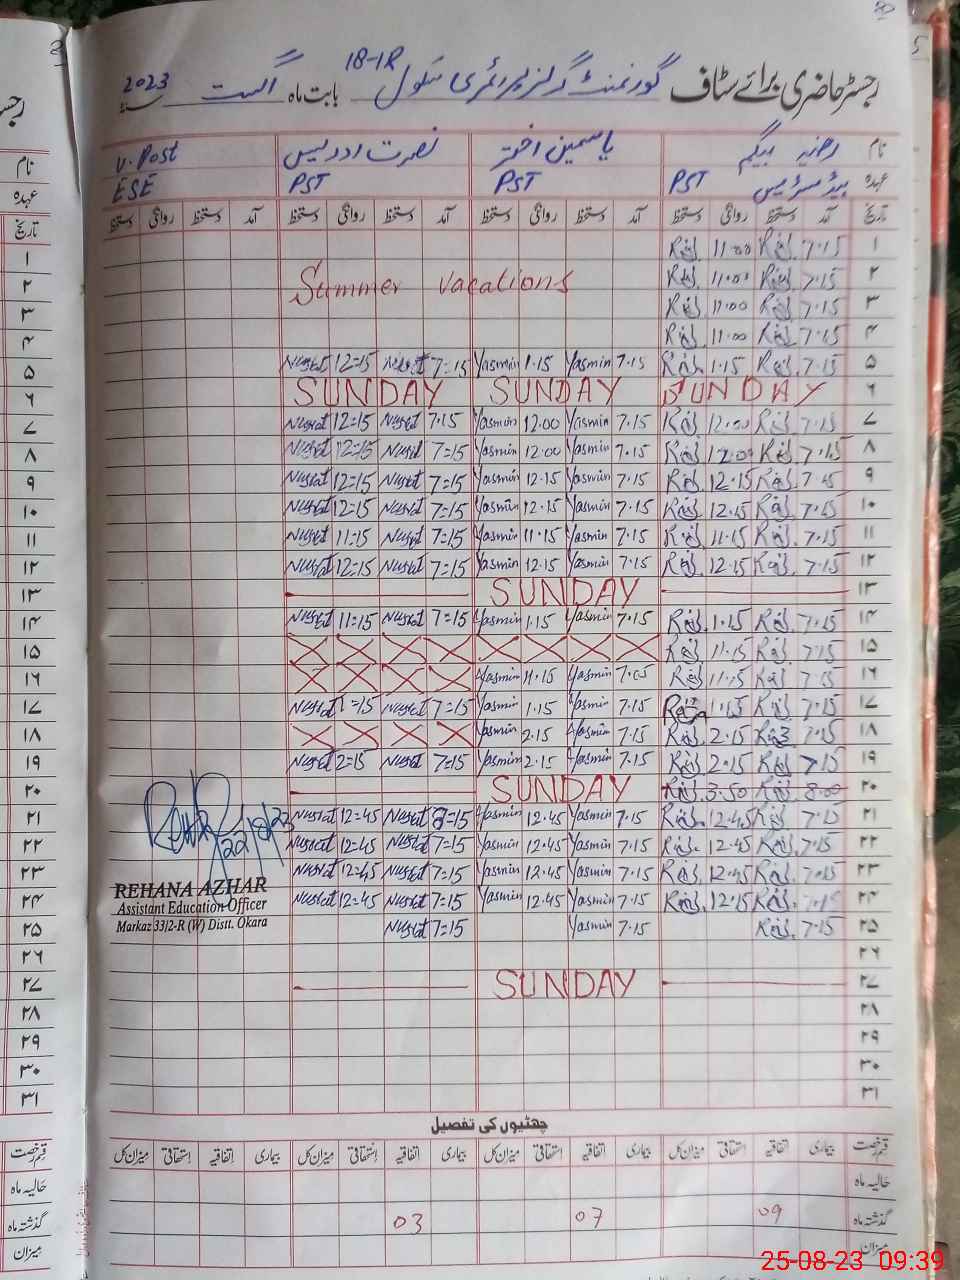 رجسٹر حاضری برائے سٹاف گورنمنٹ گرلز پرائمری سکول 18-1R بابت ماہ اگست سنہ 2023
نام رضیہ بیگم یاسمین اختر نصرت ادریس V. Post
عہدہ ہیڈ مسٹریس PST PST PST ESE
تاریخ آمد دستخط روانگی دستخط آمد دستخط روانگی دستخط آمد دستخط روانگی دستخط آمد دستخط روانگی دستخط
۱ 7.15 11.00
۲ 7.15 11.00 Summer vacations
۳ 7.15 11.00
۴ 7.15 11.00
۵ 7.15 1.15 7.15 Yasmin 1.15 Yasmin 7=15 Nusrat 12=15 Nusrat
۶ SUNDAY SUNDAY SUNDAY
۷ 7.15 12.00 7.15 Yasmin 12.00 Yasmin 7.15 Nusrat 12=15 Nusrat
۸ 7.15 12.00 7.15 Yasmin 12.00 Yasmin 7=15 Nusrat 12=15 Nusrat
۹ 7.15 12.15 7.15 Yasmin 12.15 Yasmin 7=15 Nusrat 12=15 Nusrat
۱۰ 7.15 12.15 7.15 Yasmin 12.15 Yasmin 7=15 Nusrat 12=15 Nusrat
۱۱ 7.15 11.15 7.15 Yasmin 11.15 Yasmin 7=15 Nusrat 11=15 Nusrat
۱۲ 7.15 12.15 7.15 Yasmin 12.15 Yasmin 7=15 Nusrat 12=15 Nusrat
۱۳ SUNDAY
۱۴ 7.15 1.15 7.15 Yasmin 1.15 Yasmin 7=15 Nusrat 11=15 Nusrat
۱۵ 7.15 11.15
۱۶ 7.15 11.15 Yasmin 11.15 Yasmin
۱۷ 7.15 1.15 7.15 Yasmin 1.15 Yasmin 7=15 Nusrat 1=15 Nusrat
۱۸ 7.15 2.15 7.15 Yasmin 2.15 Yasmin
۱۹ 7.15 2.15 7.15 Yasmin 2.15 Yasmin 7=15 Nusrat 2=15 Nusrat
۲۰ 8.00 3.50 SUNDAY
۲۱ 7.15 12.45 7.15 Yasmin 12.45 Yasmin Nusrat 12=45 Nusrat
۲۲ 7.15 12.45 7.15 Yasmin 12.45 Yasmin 7=15 Nusrat 12=45 Nusrat
۲۳ 7.15 12.45 7.15 Yasmin 12.45 Yasmin 7=15 Nusrat 12=45 Nusrat
۲۴ 7.15 12.15 7.15 Yasmin 12.45 Yasmin 7=15 Nusrat 12=45 Nusrat
۲۵ 7.15 7.15 Yasmin 7=15 Nusrat
۲۶
۲۷ SUNDAY
۲۸
۲۹
۳۰
۳۱
REHANA AZHAR
Assistant Education Officer
Markaz 33/2-R (W) Distt. Okara
چھٹیوں کی تفصیل
قسم رخصت بیماری اتفاقیہ استحقاقی میزان کل بیماری اتفاقیہ استحقاقی میزان کل بیماری اتفاقیہ استحقاقی میزان کل بیماری اتفاقیہ استحقاقی میزان کل
حالیہ ماہ
گذشتہ ماہ 09 07 03
میزان
25-08-23 09:39